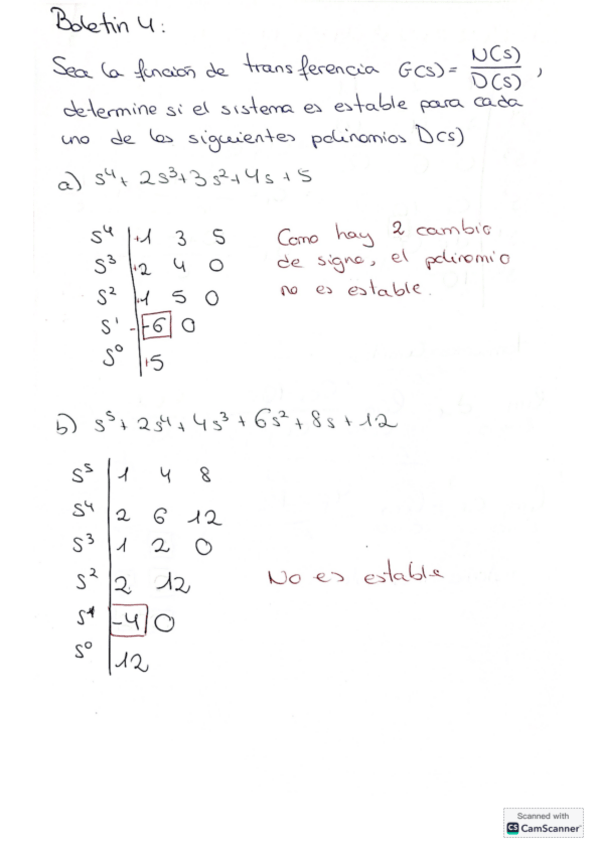 Boletín 4:
Sea la función de transferencia G(s) = N(s)/D(s),
determine si el sistema es estable para cada
uno de los siguientes polinomios D(s)
a) s⁴ + 2s³ + 3s² + 4s + 5
s⁴ | +1 3 5
s³ | +2 4 0
s² | +1 5 0
s¹ | -6 0
s⁰ | +5
Como hay 2 cambio
de signo, el polinomio
no es estable.
b) s⁵ + 2s⁴ + 4s³ + 6s² + 8s + 12
s⁵ | 1 4 8
s⁴ | 2 6 12
s³ | 1 2 0
s² | 2 12
s¹ | -4 0
s⁰ | 12
No es estable
Scanned with
CS CamScanner